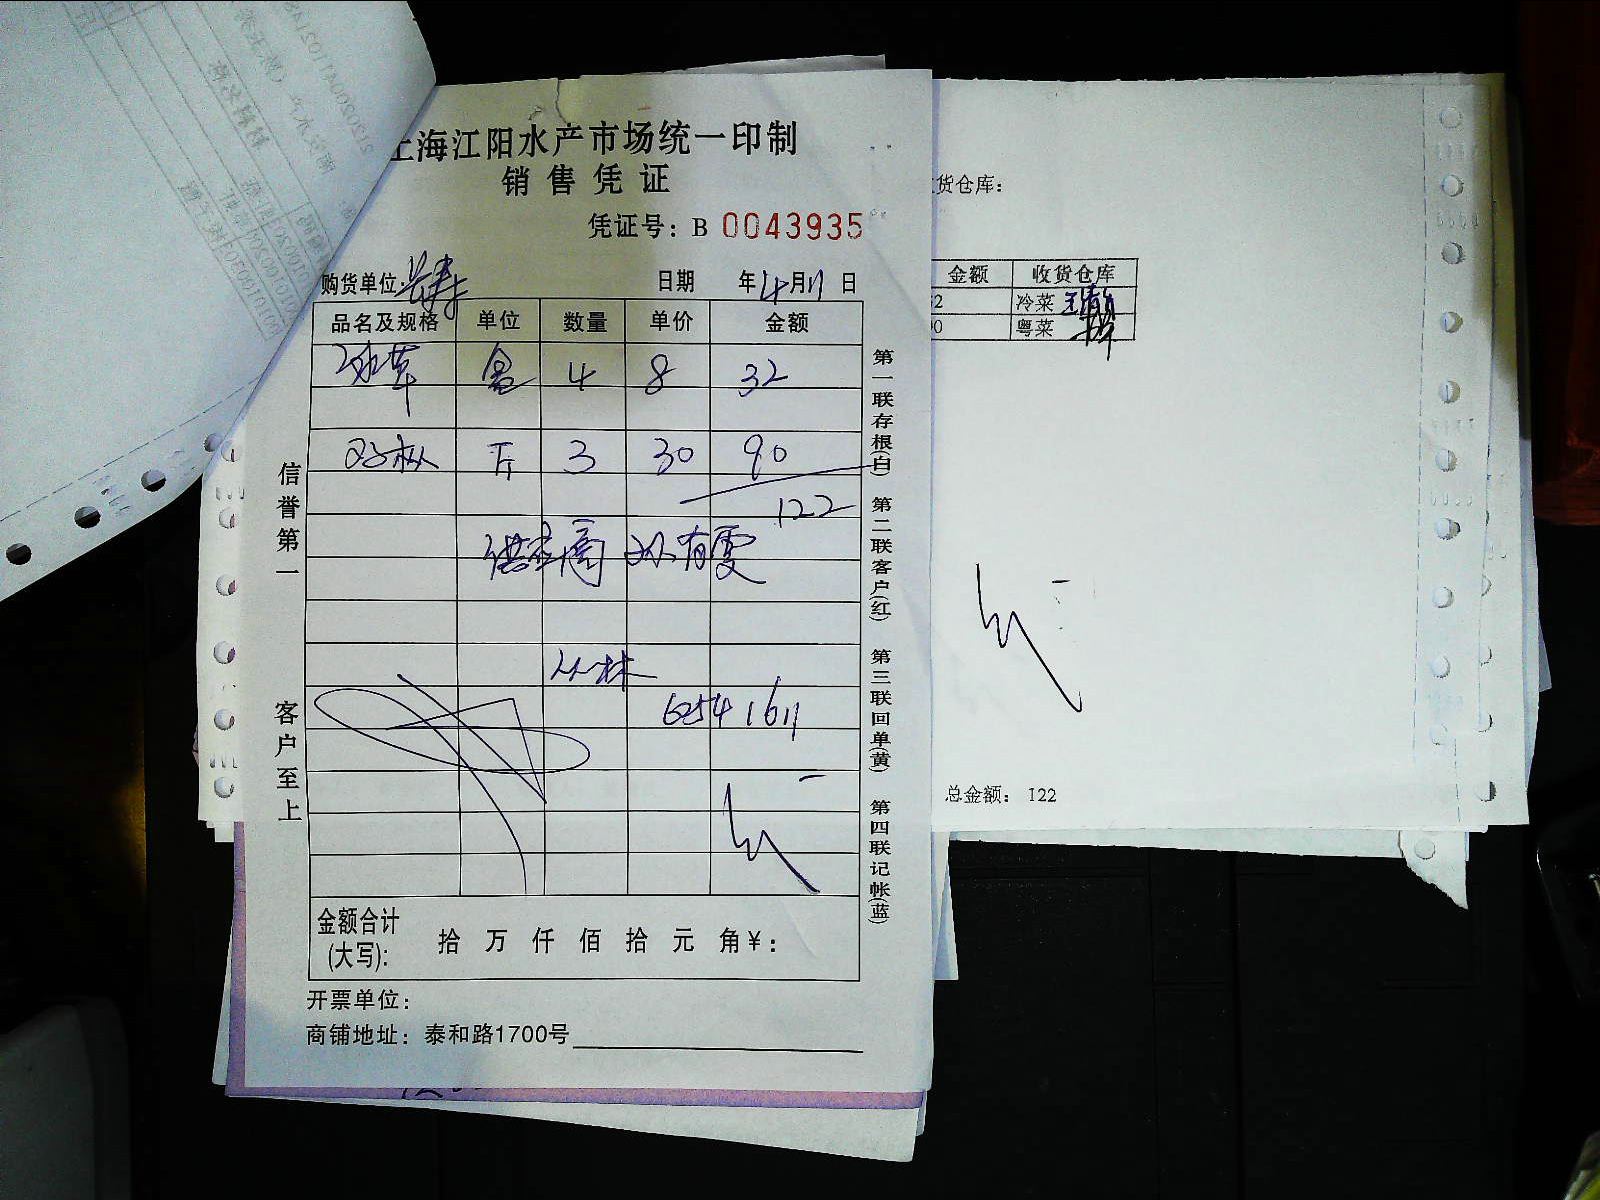 上海江阳水产市场统一印制
销售凭证
凭证号：B 0043935
购货单位： 日期 年4月11日
品名及规格 单位 数量 单价 金额
冰草 盒 4 8 32
斤 3 30 90
122
供应商 孙有雯
62541611
金额合计
(大写): 拾 万 仟 佰 拾 元 角¥：
开票单位：
商铺地址：泰和路1700号
信誉第一
客户至上
第一联存根(白)
第二联客户(红)
第三联回单(黄)
第四联记帐(蓝)
货仓库：
金额 收货仓库
2 冷菜
0 粤菜
总金额： 122